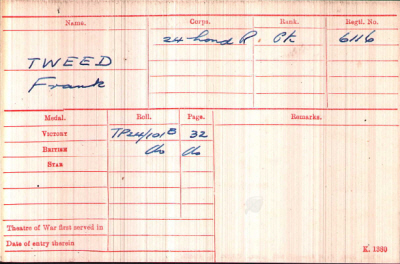 Name. Corps. Rank. Regtl. No.
24-Lond R. Pte 6116
TWEED
Frank
Medal. Roll. Page. Remarks.
VICTORY TP24/101B 32
BRITISH do do
STAR
Theatre of War first served in
Date of entry therein
K. 1380